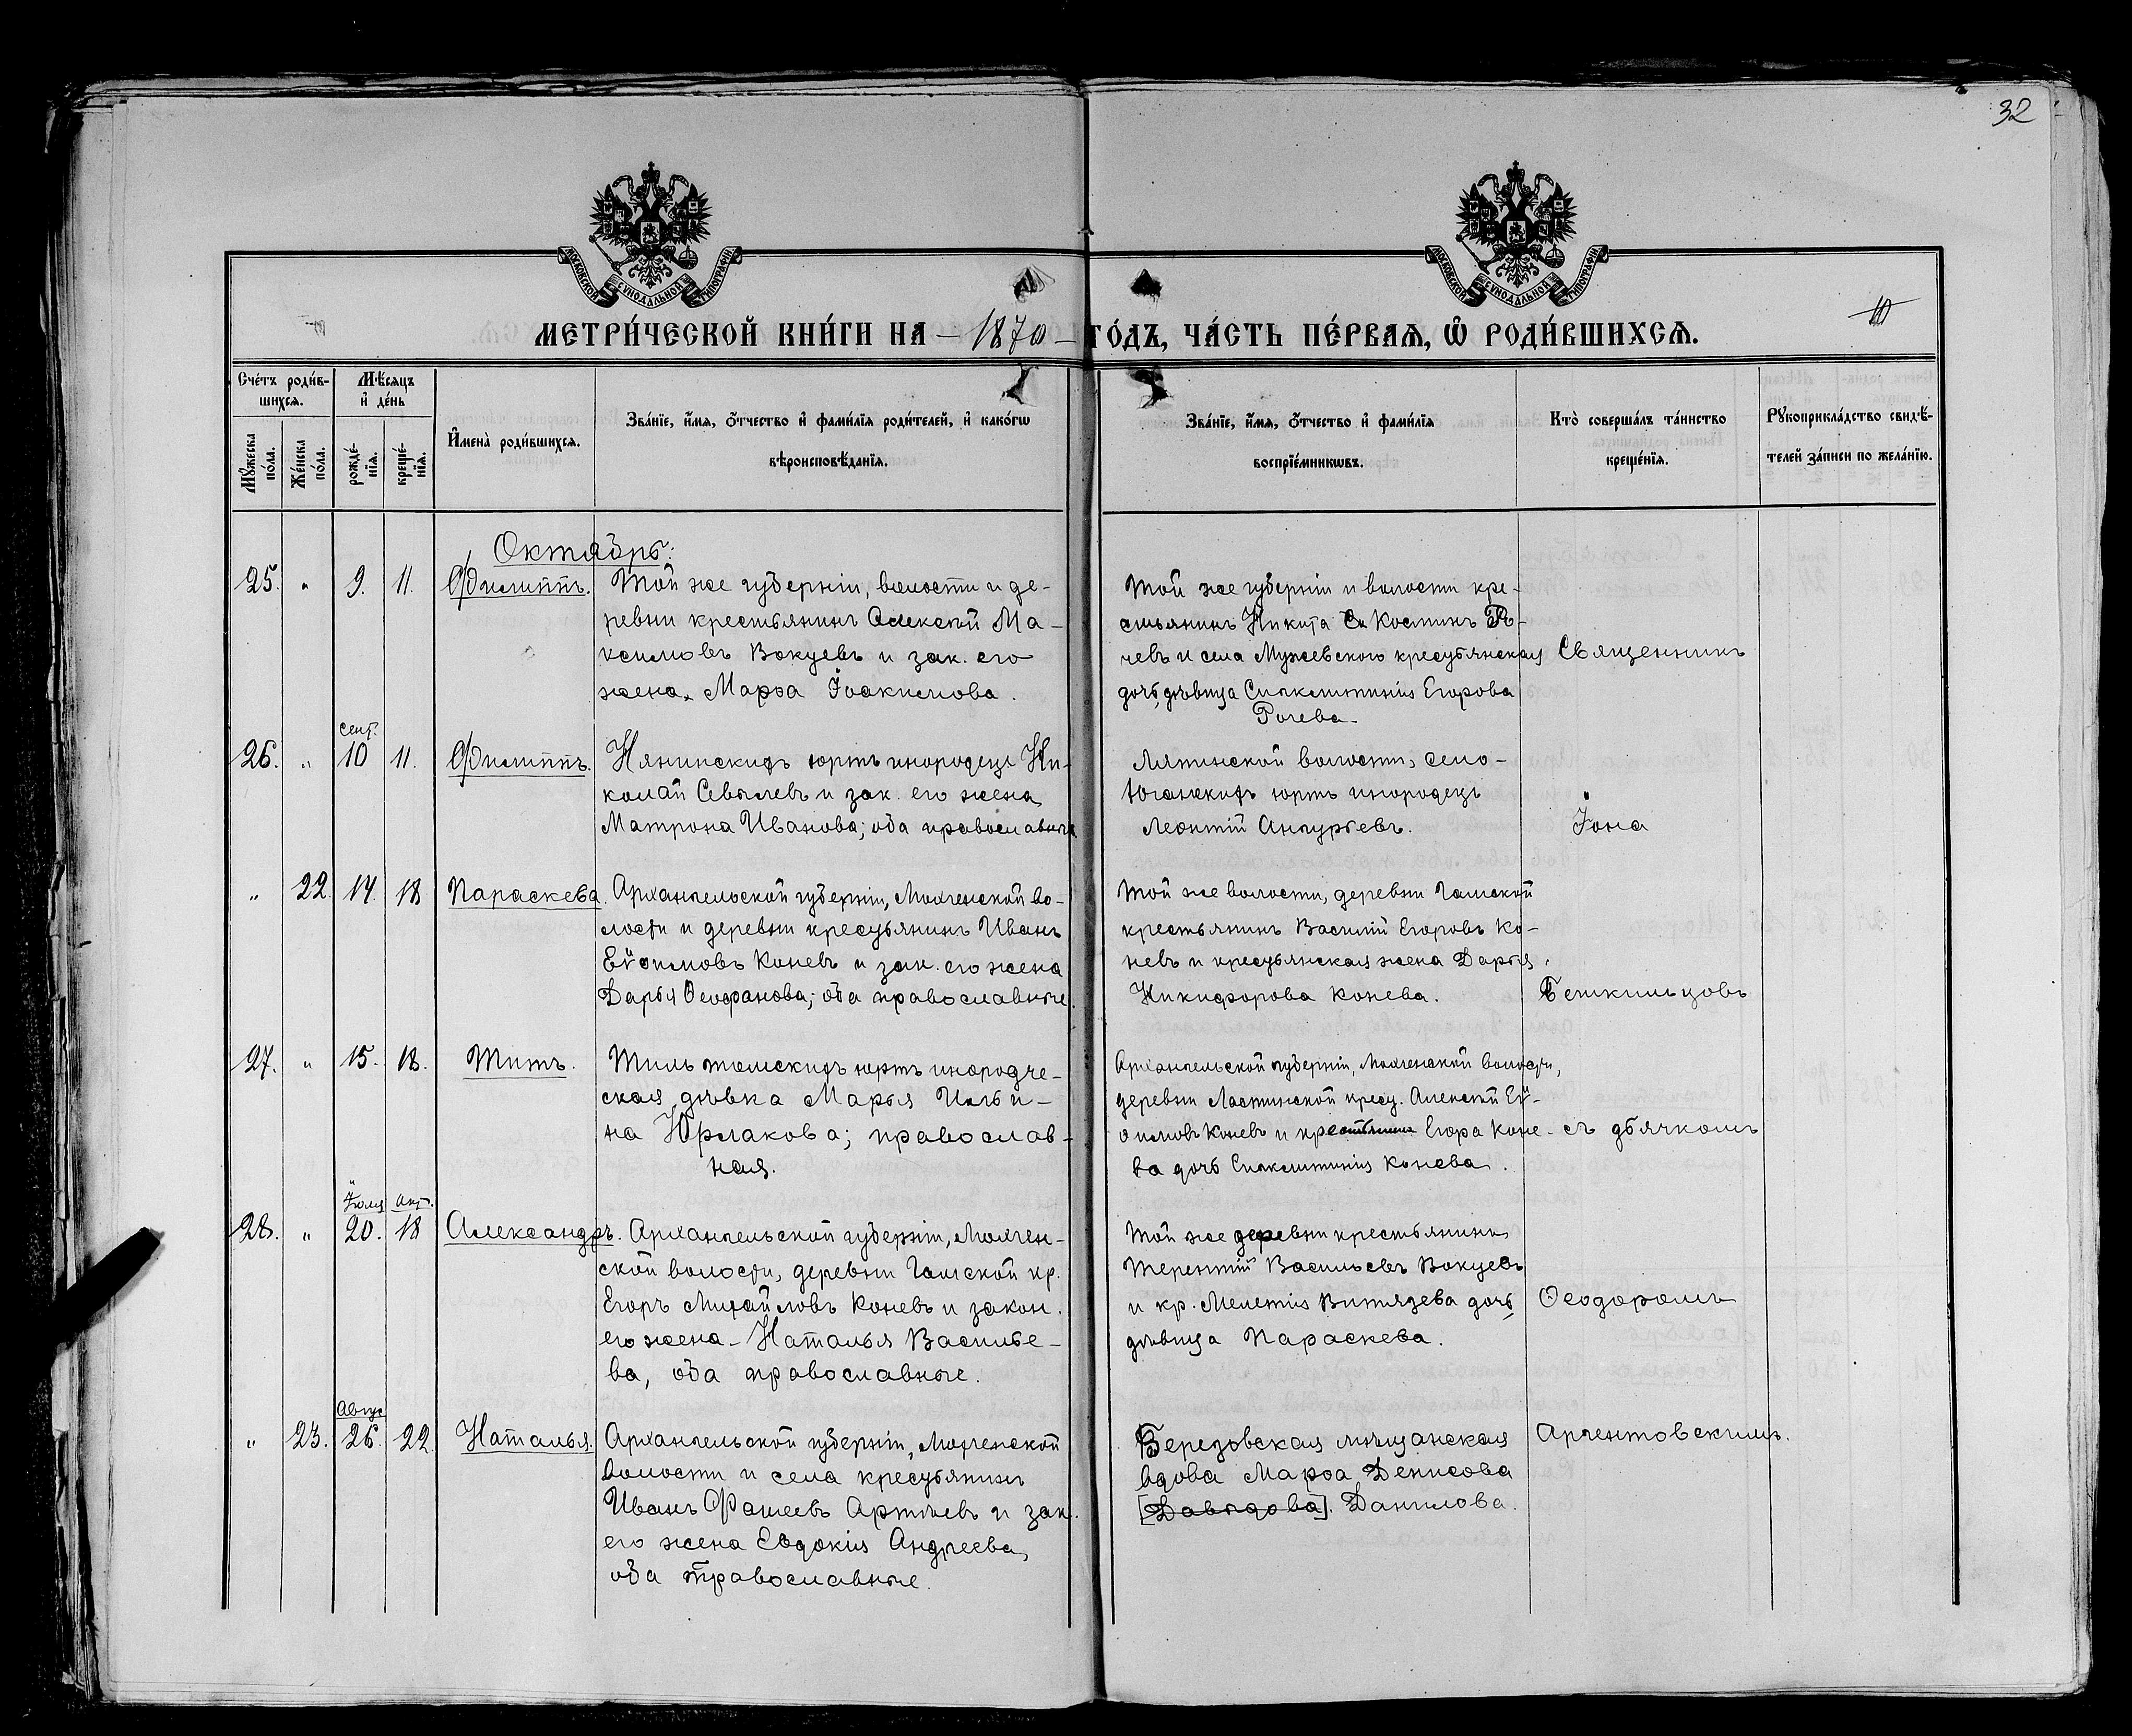 32
МОСКОВСКОЙ СУНОДАЛЬНОЙ ТИПОГРАФІИ
МОСКОВСКОЙ СУНОДАЛЬНОЙ ТИПОГРАФІИ
МЕТРИ́ЧЕСКОЙ КНИ́ГИ НА – 1870 – ГО́ДЪ, ЧА́СТЬ ПЕ́РВАѦ, Ѡ҆ РОДИ́ВШИХСѦ.
Счетъ роди́в-
шихсѧ.
Мѣ́сѧцъ
и҆ де́нь
Мꙋ́жеска
по́ла.
Же́нска
по́ла.
рожде́-
нїѧ.
креще́-
нїѧ.
И҆мена̀ роди́вшихсѧ.
Зва́нїе, и҆́мѧ, ѻ҆́тчество и҆ фами́лїѧ роди́телей, и҆ како́гѡ
вѣроисповѣ́данїѧ.
Зва́нїе, и҆́мѧ, ѻ҆́тчество и҆ фами́лїѧ
воспрїе́мникѡвъ.
Кто̀ соверша́лъ та́инство
креще́нїѧ.
Рꙋкоприкла́дство свидѣ́-
телей за́писи по жела́нїю.
Октябрь:
25. " 9. 11. Филиппъ.
Той же губерніи, волости и де-
ревни крестьянинъ Алексѣй Ма-
ксимовъ Вокуевъ и зак. его
жена Марѳа Іоакимова.
Той же губерніи и волости кре-
стьянинъ Никита Костинъ Ро-
чевъ и села Мужевского крестьянская
дочь, дѣвица Синклитикія Егорова
Рочева.
Священникъ
сент.
26. " 10 11. Филиппъ.
Нянинскихъ юртъ инородецъ Ни-
колай Севылевъ и зак. его жена
Матрона Иванова; оба православные
Ляпинской волости,
юртъ инородецъ
Леонтій
Іона
" 22. 14. 18 Параскева.
Архангельской губерніи, Мохченской во-
лости и деревни крестьянинъ Иванъ
Еѵѳимовъ Коневъ и зак. его жена
Дарья Ѳеофанова; оба православные.
Той же волости, деревни Гамской
крестьянинъ Василій Егоровъ Ко-
невъ и крестьянская жена Дарья
Никифорова Конева.
Бешкильцовъ
27. " 15. 18. Титъ.
юртъ инородче-
ская дѣвка Марья Ильи-
на Юрлакова; православ-
ная.
Архангельской губерніи, Мохченской волости,
деревни Ластинской крест. Алексѣй Еѵ-
ѳимовъ Коневъ и крестьянина Егора Коне-
ва дочь Синклитикія Конева.
съ дьячкомъ
Іюля Окт.
28. " 20. 18 Александръ.
Архангельской губерніи, Мохчен-
ской волости, деревни Гамской кр.
Егоръ Михайловъ Коневъ и закон.
его жена – Наталья Василье-
ва, оба православные.
Той же деревни крестьянинъ
Терентій Васильевъ Вокуевъ
и кр. Мелетія Витязева дочь,
дѣвица Параскева.
Ѳеодоромъ
Август
" 23. 26. 22. Наталья.
Архангельской губерніи, Мохченской
волости и села крестьянинъ
Иванъ Фатеевъ Артѣевъ и зак.
его жена Евдокія Андреева,
оба православные.
Березовская мѣщанская
вдова Марѳа Денисова
[Давыдова]. Данилова.
Аргентовскимъ.